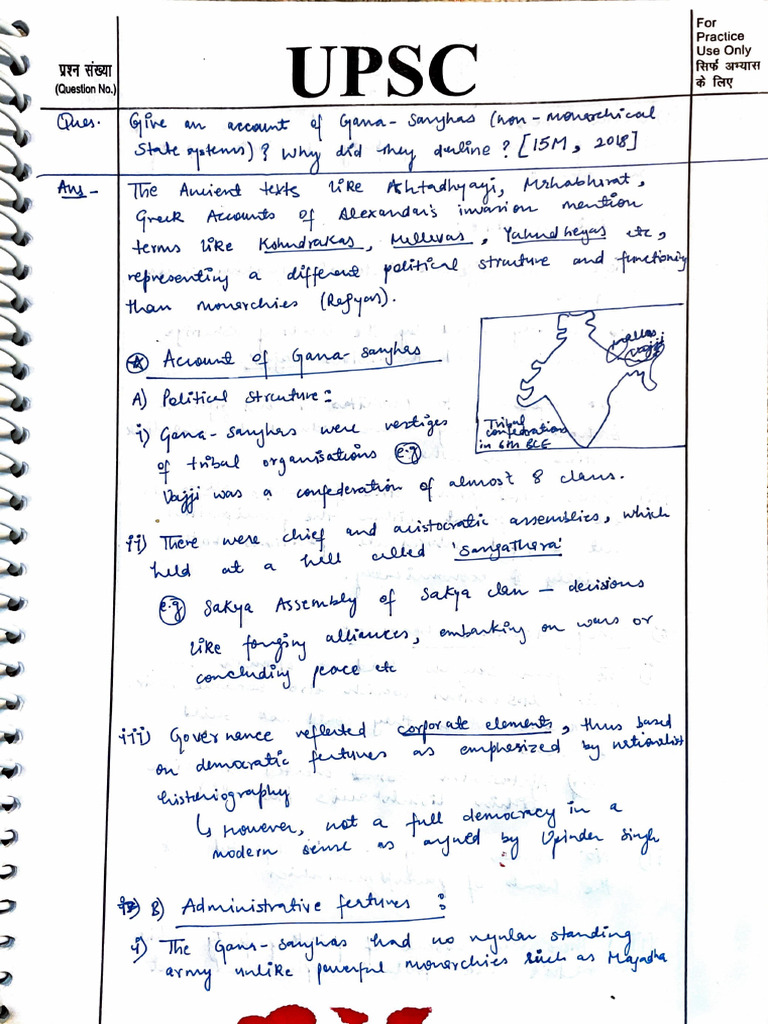 प्रश्न संख्या
(Question No.)
UPSC
For
Practice
Use Only
सिर्फ अभ्यास
के लिए
Ques. Give an account of Gana-Sanghas (non-monarchical
State systems)? Why did they decline? [15M, 2018]
Ans - The Ancient texts like Ashtadhyayi, Mahabharat,
Greek Accounts of Alexandar's invasion mention
terms like Kshudrakas, Mallavas, Yahudheyas etc,
representing a different political structure and functioning
than monarchies (Rajyas).
Account of Gana-sanghas
Mallas
Vajji
Tribal
confederations
in 6th BCE
A) Political Structure:
i) Gana-Sanghas were vestiges
of tribal organisations e.g
Vajji was a confederation of almost 8 clans.
ii) There were chief and aristocratic assemblies, which
held at a hall called 'Sangathara'
e.g Sakya Assembly of Sakya clan – decisions
like forging alliances, embarking on wars or
concluding peace etc
iii) Governance reflected corporate elements, thus based
on democratic features as emphasized by nationalist
historiography
↳ However, not a full democracy in a
modern sense as argued by Upinder Singh
B) Administrative features :
i) The Gana-sanghas had no regular standing
army unlike powerful monarchies such as Magadha